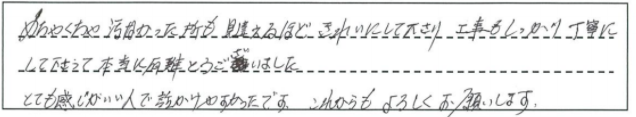 めちゃくちゃ汚かった所も見違えるほどきれいにして下さり 工事もしっかり丁寧に
して下さって本当に有難とうございました
とても感じがいい人で話かけやすかったです これからもよろしくお願いします.